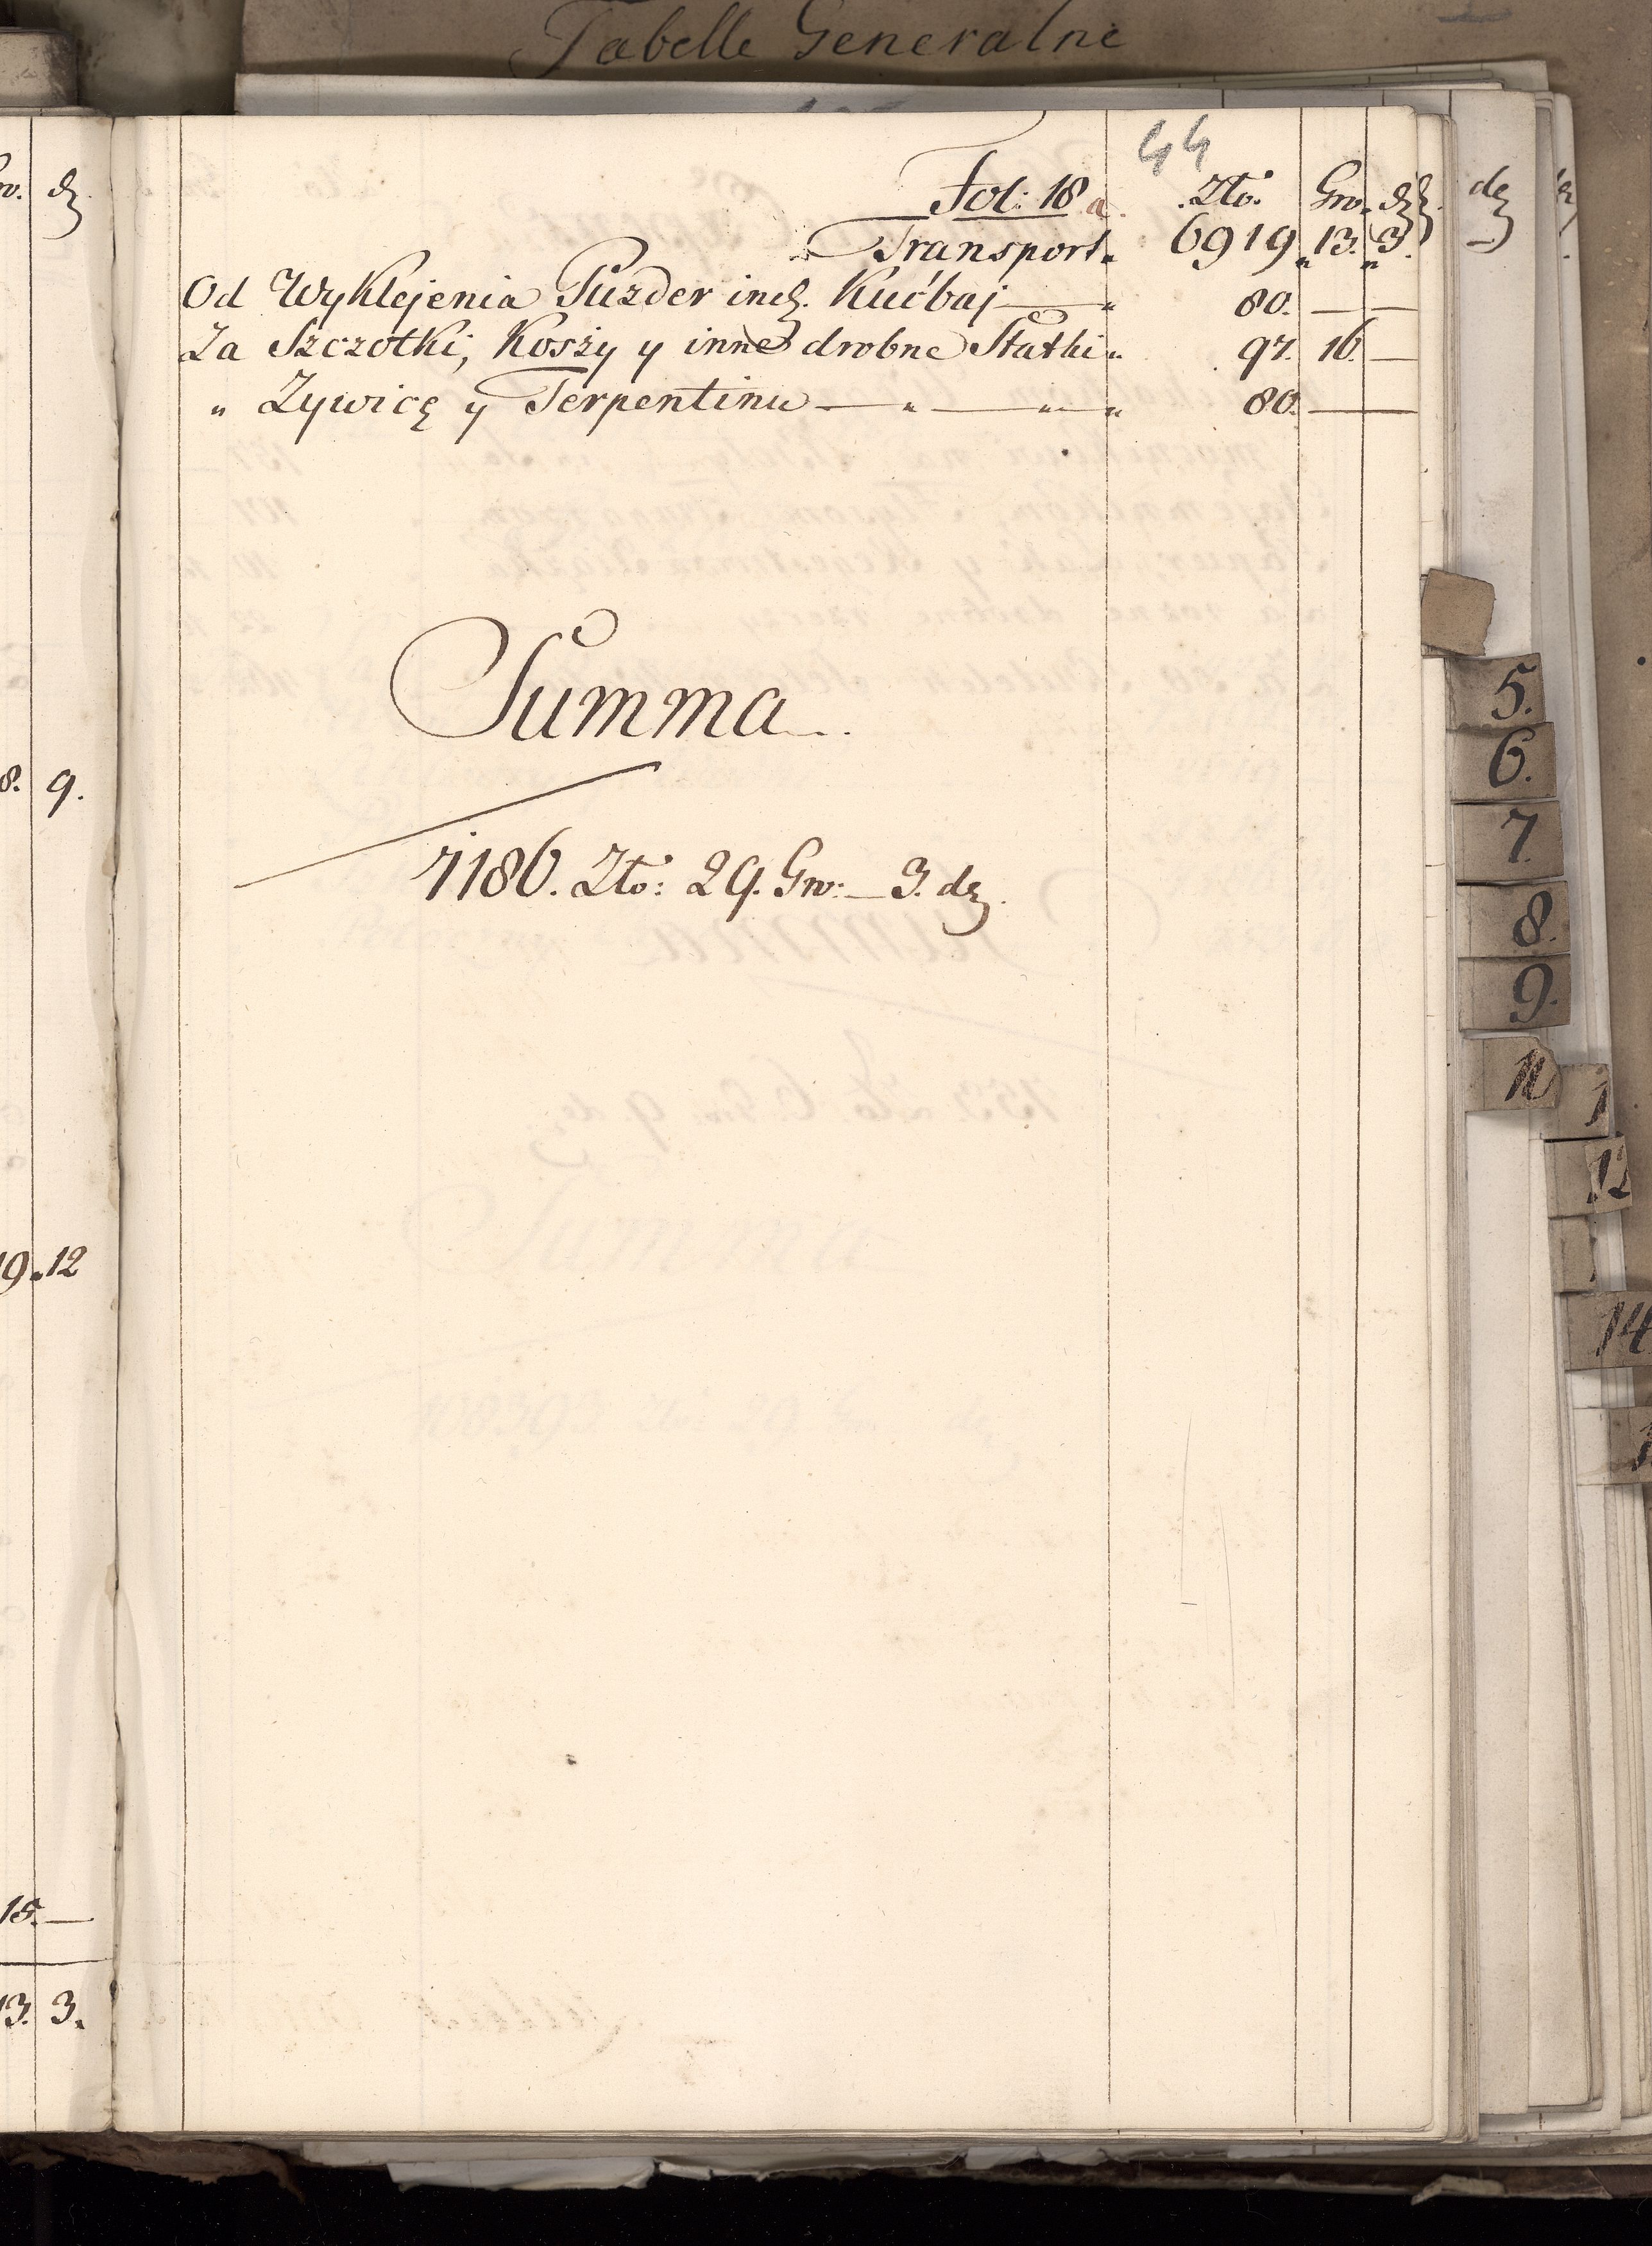 Tabelle Generalne
44
Fol: 18 a. Zło: Gro. dz
Transport 6919 „ 13 „ 3.
Od Wyklejenia Puzder incl. Kućbaj — „ 80. — —
Za Szczotki, Koszy y inne drobne Statki „ 97. 16. —
„ Zywicę y Terpentinu — „ — „ — „ 80. — —
Summa
7186. Zło: 29. Gro: — 3. dz.
dz
8. 9.
19 „ 12
15. —
13. 3.
dz
5.
6.
7.
8.
9.
12
14